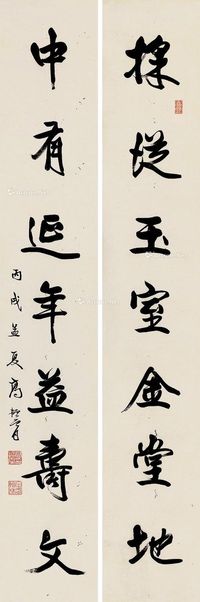 採從玉室金堂地
中有延年益壽文
丙戌孟夏高